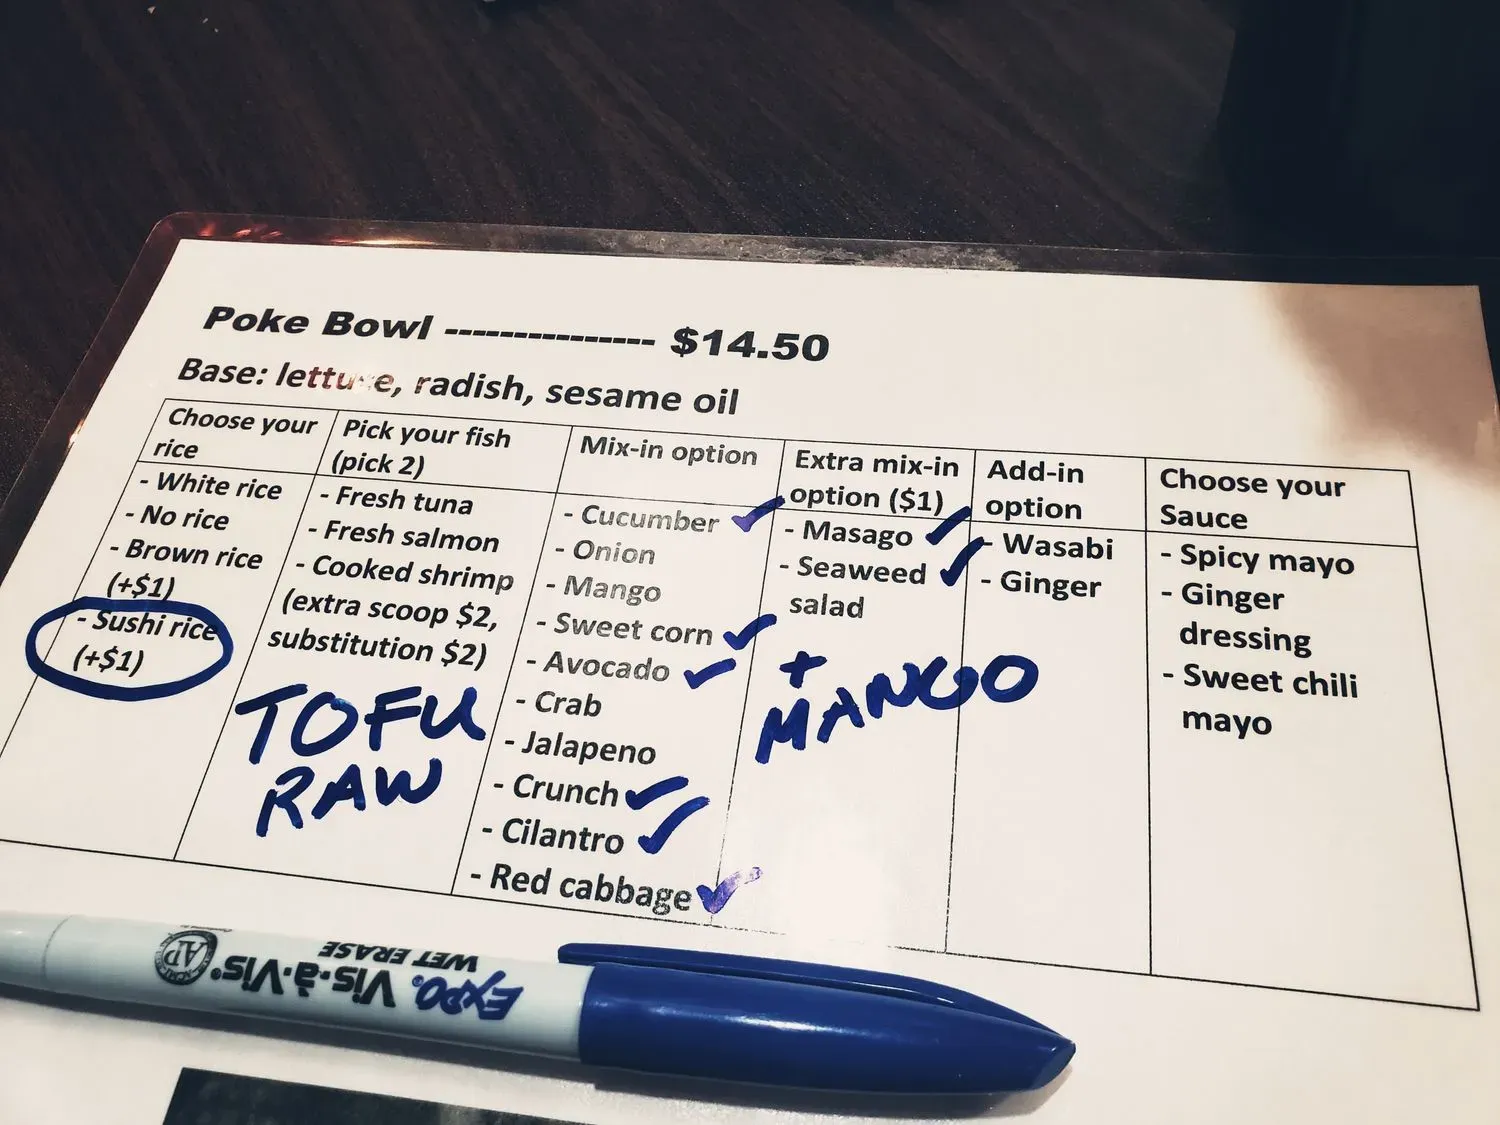 Poke Bowl --------------- $14.50
Base: lettuce, radish, sesame oil
Choose your
rice
- White rice
- No rice
- Brown rice
(+$1)
- Sushi rice
(+$1)
Pick your fish
(pick 2)
- Fresh tuna
- Fresh salmon
- Cooked shrimp
(extra scoop $2,
substitution $2)
TOFU
RAW
Mix-in option
- Cucumber ✓
- Onion
- Mango
- Sweet corn ✓
- Avocado ✓
- Crab
- Jalapeno
- Crunch ✓
- Cilantro ✓
- Red cabbage ✓
Extra mix-in
option ($1)
- Masago ✓
- Seaweed ✓
salad
+
MANGO
Add-in
option
- Wasabi
- Ginger
Choose your
Sauce
- Spicy mayo
- Ginger
dressing
- Sweet chili
mayo
EXPO® Vis-à-Vis®
WET ERASE
AP